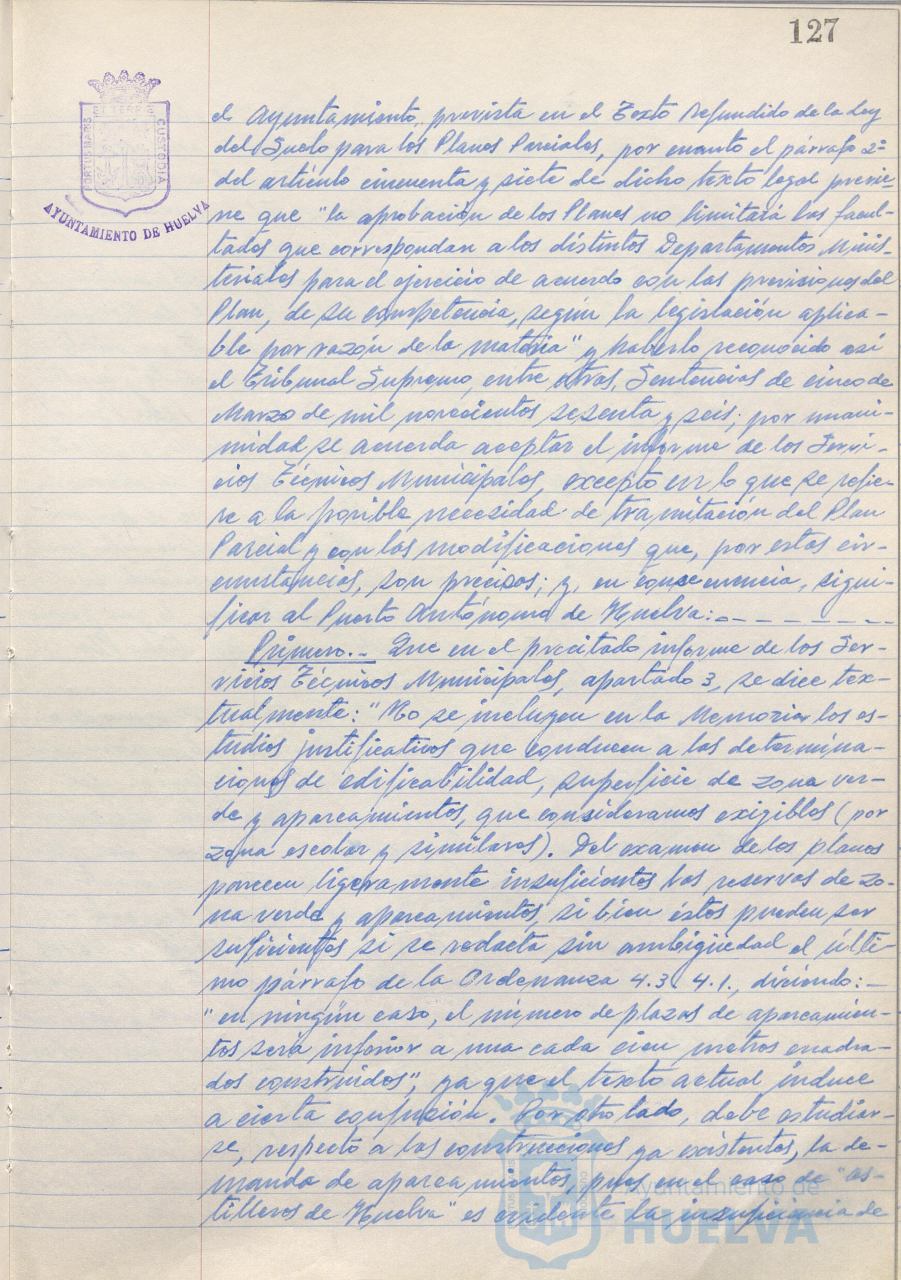 127
PORTUS MARIS ET TERRE CUSTODIA
AYUNTAMIENTO DE HUELVA
el Ayuntamiento, prevista en el Texto Refundido de la Ley
del Suelo para los Planes Parciales, por cuanto el párrafo 2º
del artículo cincuenta y siete de dicho texto legal previe-
ne que "la aprobación de los Planes no limitará las facul-
tades que correspondan a los distintos Departamentos Minis-
teriales para el ejercicio de acuerdo con las previsiones del
Plan, de su competencia, según la legislación aplica-
ble por razón de la materia" y haberlo reconocido así
el Tribunal Supremo, entre otras, Sentencias de cinco de
Marzo de mil novecientos sesenta y seis; por unani-
midad se acuerda aceptar el informe de los Servi-
cios Técnicos Municipales, excepto en lo que se refie-
re a la posible necesidad de tramitación del Plan
Parcial y con las modificaciones que, por estas cir-
cunstancias, son precisas; y, en consecuencia, signi-
ficar al Puerto Autónomo de Huelva:. - - - - - - -
Primero.- Que en el precitado informe de los Ser-
vicios Técnicos Municipales, apartado 3, se dice tex-
tualmente: "No se incluyen en la Memoria los es-
tudios justificativos que conducen a las determina-
ciones de edificabilidad, superficie de zona ver-
de y aparcamientos, que consideramos exigibles (por
zona escolar y similares). Del examen de los planos
parecen ligeramente insuficientes las reservas de zo-
na verde y aparcamientos, si bien éstos pueden ser
suficientes si se redacta sin ambigüedad el últi-
mo párrafo de la Ordenanza 4.3.4.1., diciendo:-
"en ningún caso, el número de plazas de aparcamien-
tos será inferior a una cada cien metros cuadra-
dos construidos", ya que el texto actual induce
a cierta confusión. Por otro lado, debe estudiar-
se, respecto a las construcciones ya existentes, la de-
manda de aparcamientos, pues en el caso de "as-
tilleros de Huelva" es evidente la insuficiencia de
Ayuntamiento de
HUELVA